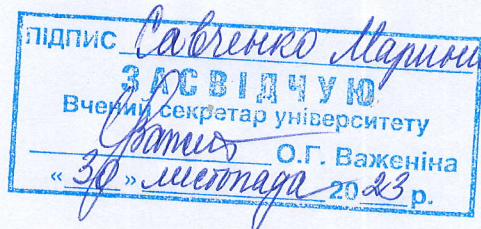 ПІДПИС Савченко Марини
ЗАСВІДЧУЮ
Вчений секретар університету
О.Г. Важеніна
« 30 » листопада 2023 р.